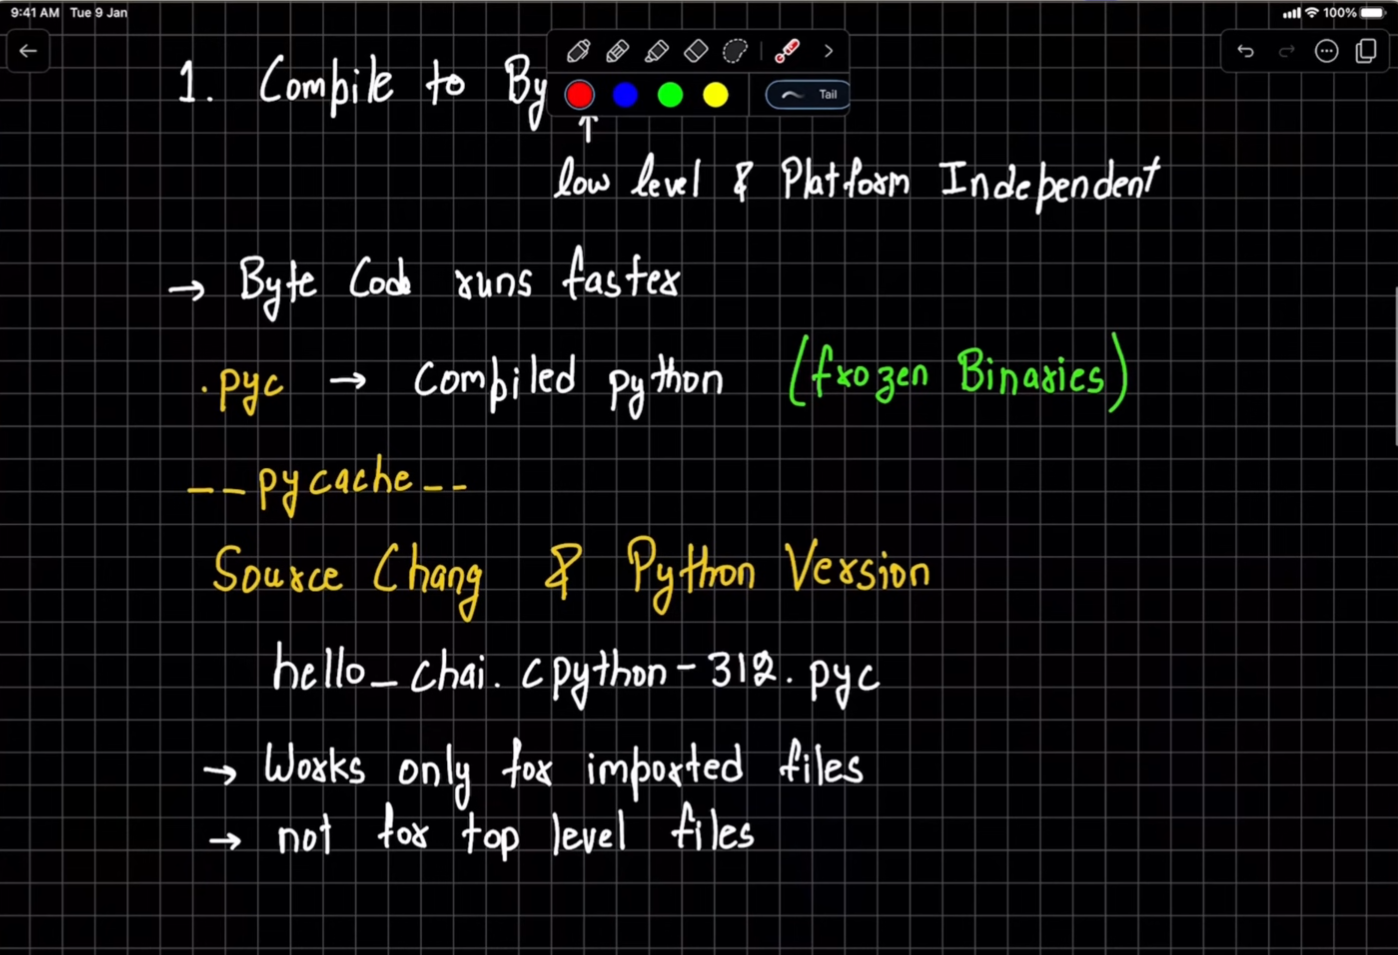 9:41 AM Tue 9 Jan
100%
1. Compile to By
Tail
↑
low level & Platform Independent
→ Byte Code runs faster
.pyc → Compiled python (frozen Binaries)
--pycache--
Source Chang & Python Version
hello_chai.cpython-312.pyc
→ Works only for imported files
→ not for top level files